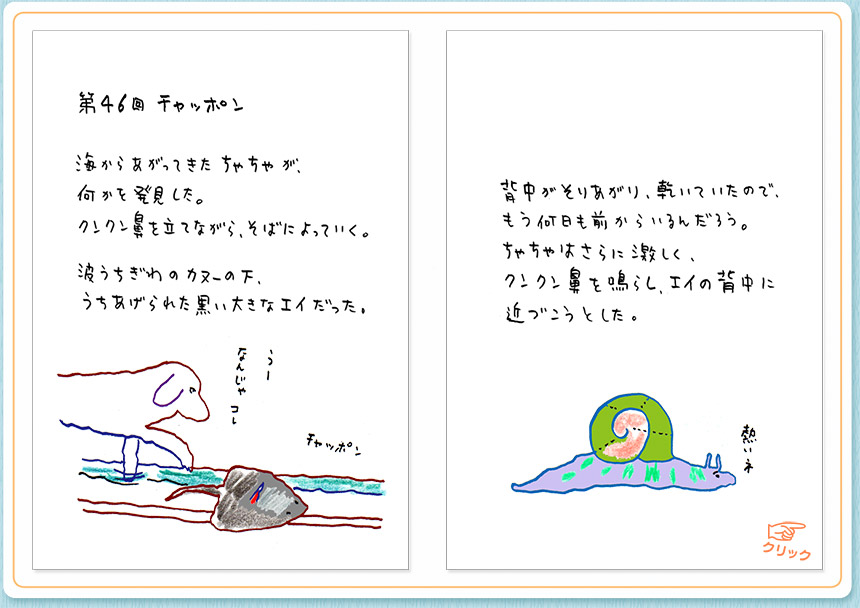 第46回 チャッポン
海からあがってきた ちゃちゃが、
何かを発見した。
クンクン鼻を立てながら、そばによっていく。
波うちぎわのカヌーの下、
うちあげられた黒い大きなエイだった。
うー
なんじゃ コレ
チャッポン
背中がそりあがり、乾いていたので、
もう何日も前からいるんだろう。
ちゃちゃはさらに激しく、
クンクン鼻を鳴らし、エイの背中に
近づこうとした。
熱いネ
クリック